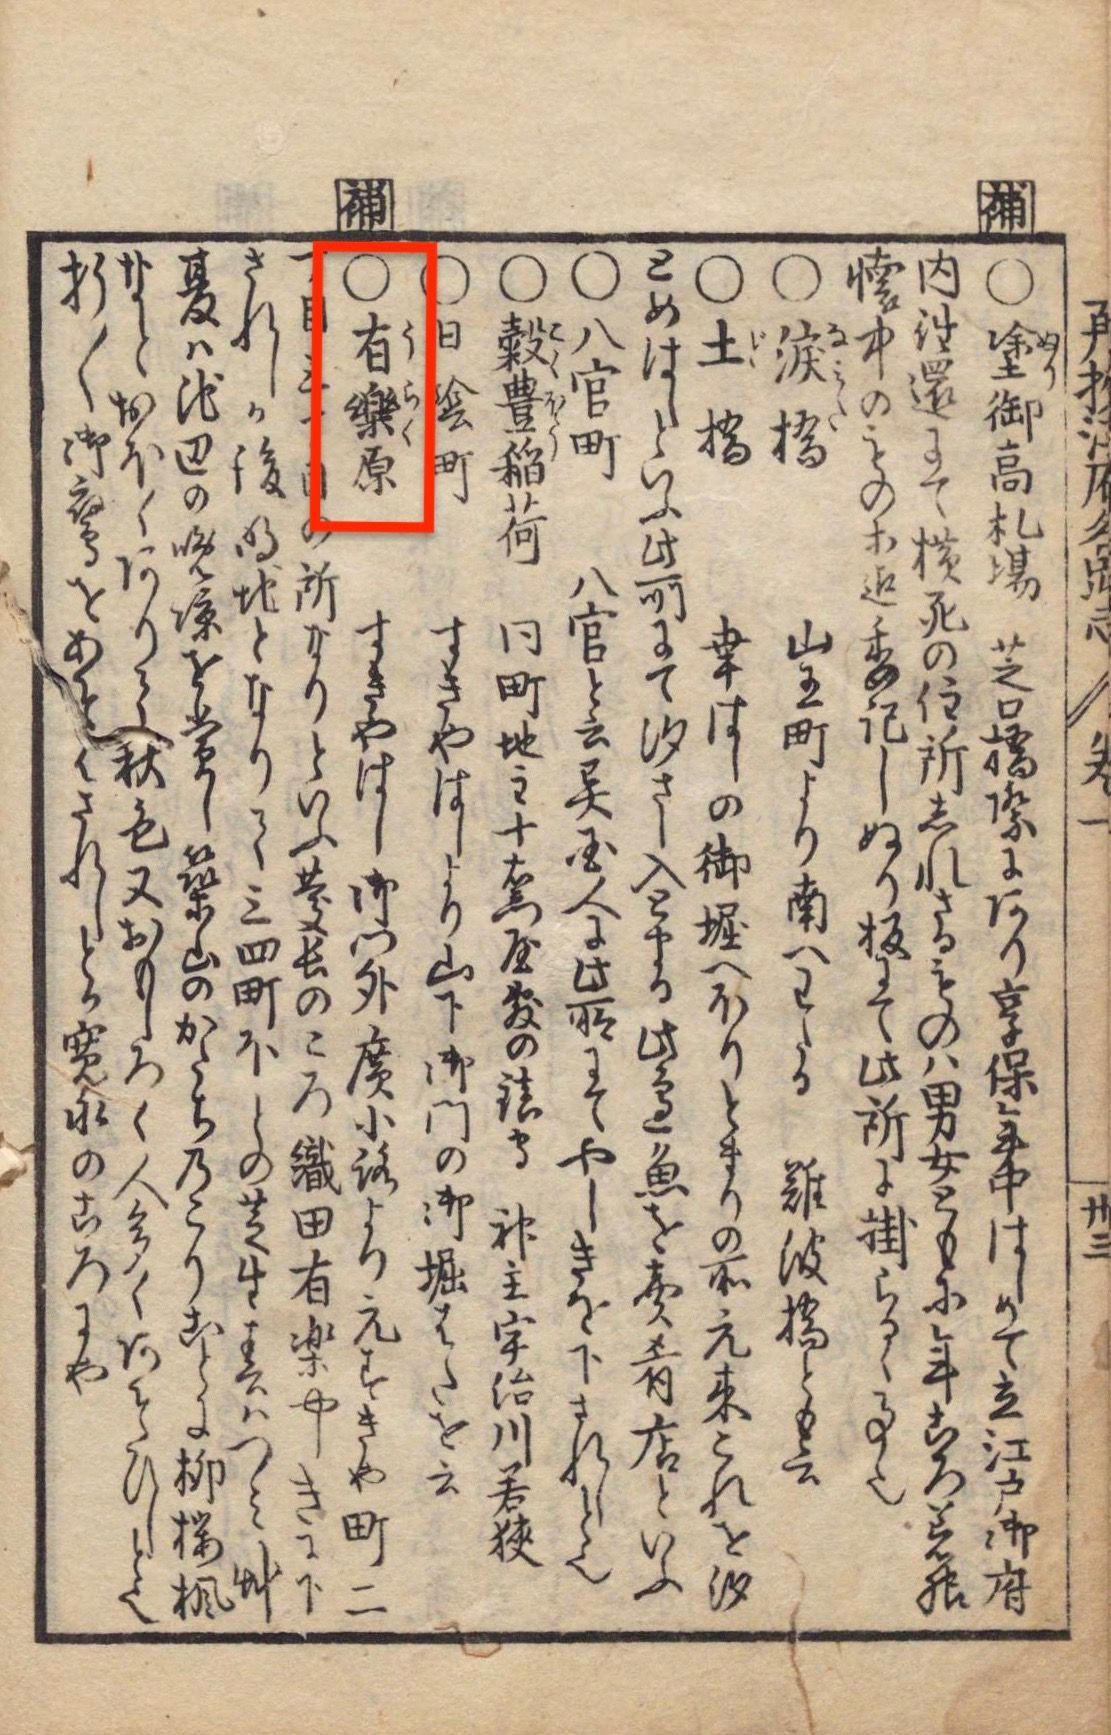 補
○塗御高札場 芝口橋際にあり享保年中はしめて立江戸御府
内往還にて横死の住所しれさるものハ男女ともに年ころ衣服
懐中のもの等迄委記しぬり板にて此所に掛らるゝ事也
○涙橋 山王町より南へわたる 難波橋とも云
○土橋 幸はしの御堀へほりとまりの所元来これを汐
とめはしといふ此所にて汐さし入とまる此邊魚を売肴店といふ
○八官町 八官と云異国人に此所にてやしきを下されしと也
○穀豊稲荷 同町地主十蔵屋敷の鎮守 神主宇治川若狭
○日陰町 すきやはしより山下御門の御堀はたを云
補
○有樂原 すきやはし御門外廣小路より元すきや町二
丁目三丁目の所なりといふ慶長のころ織田有楽やしきに下
されしか後明地となりて三四町ほとの芝生春はつみ草
夏ハ池辺の晩凉を賞し築山のかたち乃こりことに柳桜楓
なとおほくありて秋色又おもしろく人多くあそひしと也
折〱御鷹をめさせられしとか寛永のころにや
再校江府名跡志 巻一
卅三